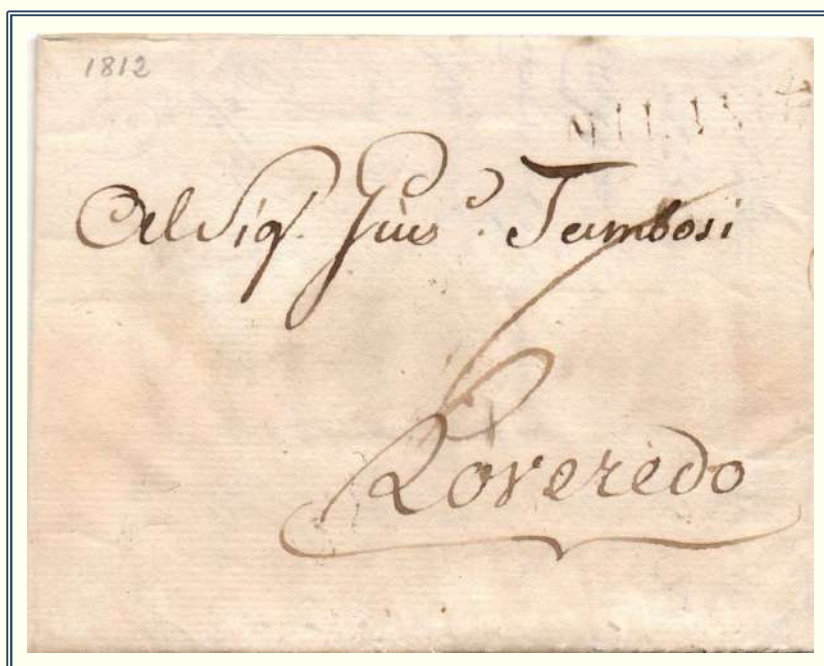 1812
MILANO
Al Sig.r Gius.e Tambosi
6
Roveredo